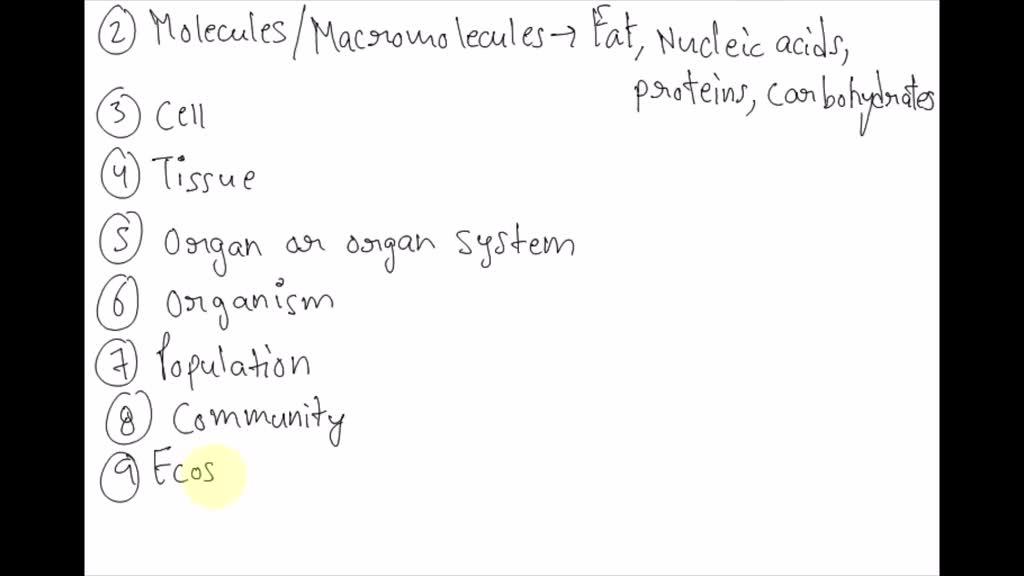 ② Molecules/Macromolecules → Fat, Nucleic acids,
proteins, carbohydrates
③ Cell
④ Tissue
⑤ Organ or organ system
⑥ Organism
⑦ Population
⑧ Community
⑨ Ecos